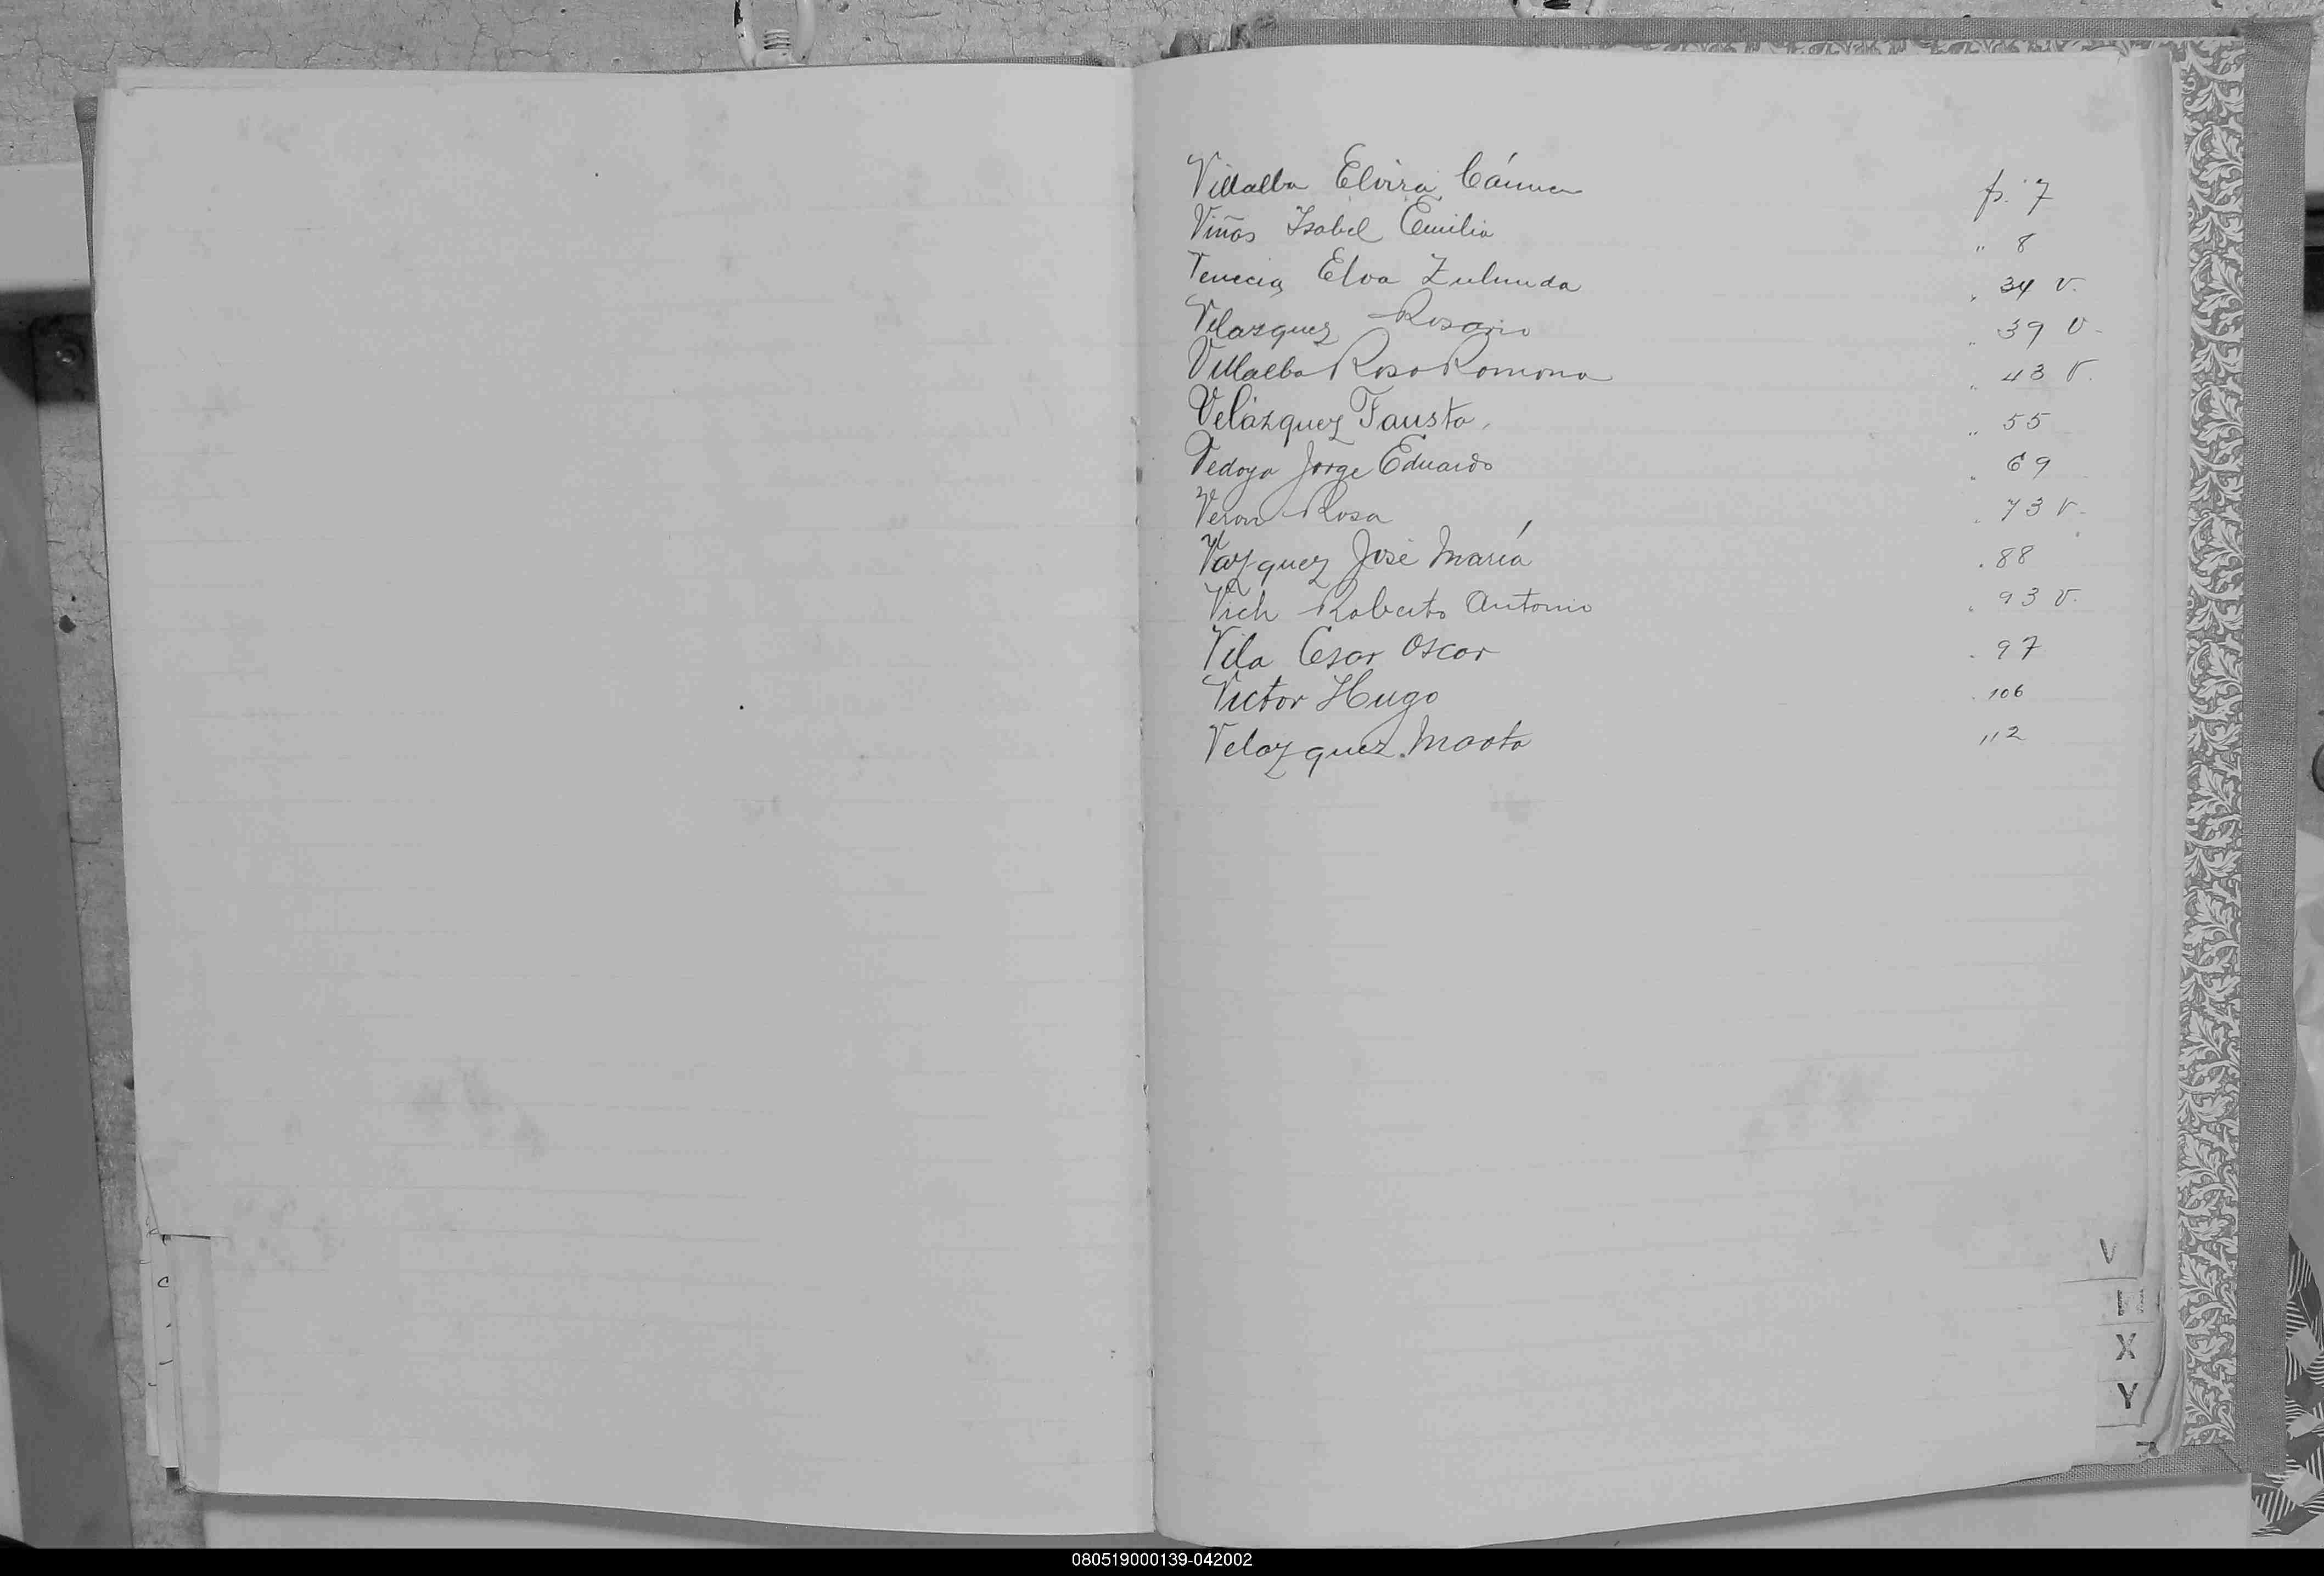 Villalba Elvira Cármen fs. 7
Viñas Isabel Emilia " 8
Venecia Elva Zulmuda " 34 v.
Velazquez Rosario " 39 v.
Villalba Rosa Ramona " 43 v.
Velázquez Fausta " 55
Vedoya Jorge Eduardo " 69
Veron Rosa " 73 v.
Vazquez José María " 88
Vich Roberto Antonio " 93 v.
Vila Cesar Oscar " 97
Victor Hugo " 106
Velazquez Marta 112
V
X
Y
080519000139-042002